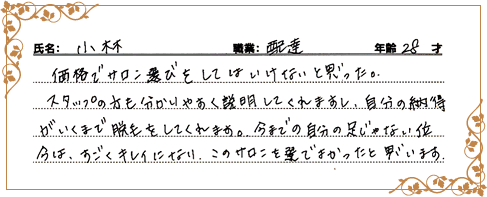 氏名: 小林 職業: 配達 年齢 28 才
価格でサロン選びをしてはいけないと思った。
スタッフの方も分かりやすく説明してくれますし、自分の納得
がいくまで脱毛をしてくれます。今までの自分の足じゃない位
今は、すごくキレイになり、このサロンを選でよかったと思います。